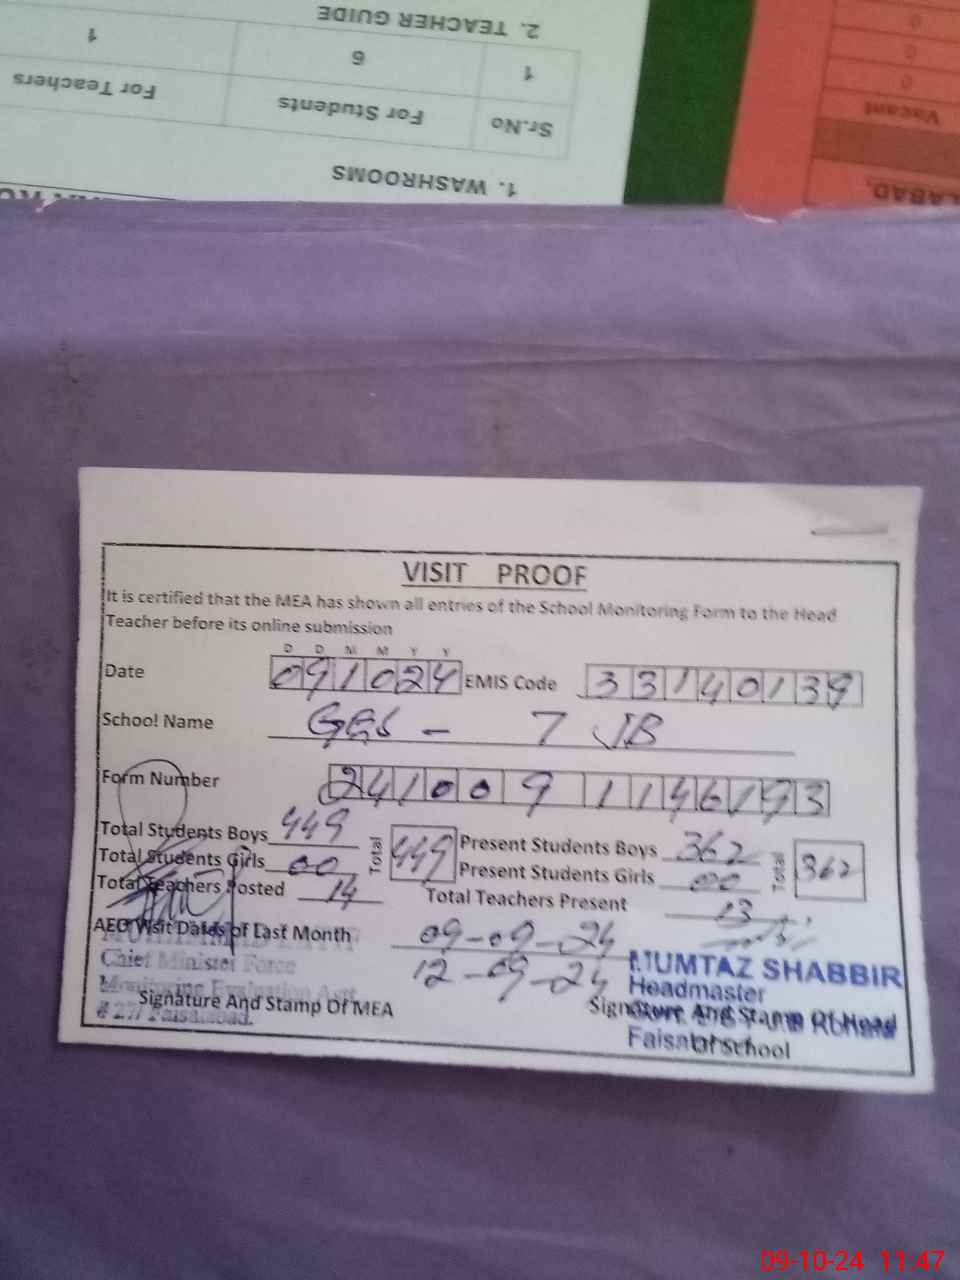 2. TEACHER GUIDE
1 6 1
Sr.No For Students For Teachers
1. WASHROOMS
0
0
0
Vacant
VISIT PROOF
It is certified that the MEA has shown all entries of the School Monitoring Form to the Head
Teacher before its online submission
D D M M Y Y
Date 091024 EMIS Code 33140139
School Name GES - 7 JB
Form Number 24100911146193
Total Students Boys 449 Total 449 Present Students Boys 362 Total 362
Total Students Girls 00 Present Students Girls 00
Total Teachers Posted 14 Total Teachers Present 13
AEO Visit Dates of Last Month 09-09-24
12-09-24
Chief Minister Force
Monitoring Evaluation Asst.
# 277 Faisalabad.
Signature And Stamp Of MEA
MUMTAZ SHABBIR
Headmaster
Signature And Stamp Of Head
Of School
09-10-24 11:47